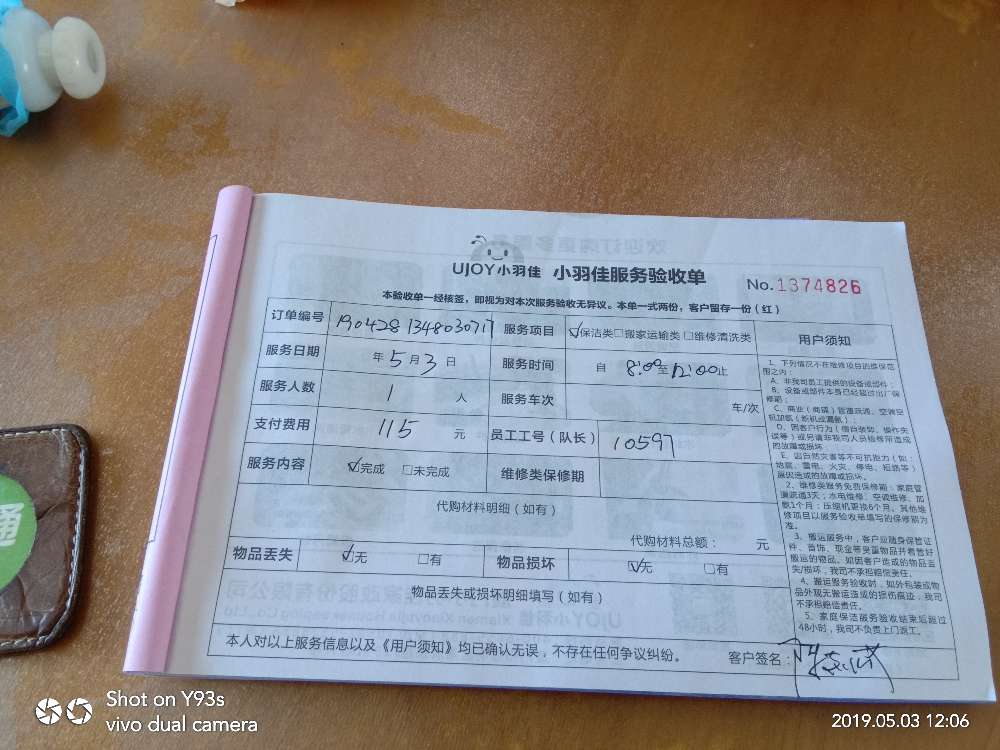 UJOY小羽佳 小羽佳服务验收单 No.1374826
本验收单一经核签，即视为对本次服务验收无异议。本单一式两份，客户留存一份（红）
订单编号 190428134803071 服务项目 ☑保洁类□搬家运输类□维修清洗类
服务日期 年5月3日 服务时间 自8:00至12:00止
服务人数 1人 服务车次 车/次
支付费用 115元 员工工号（队长） 10597
服务内容 ☑完成 □未完成 维修类保修期
代购材料明细（如有）
代购材料总额： 元
物品丢失 ☑无 □有 物品损坏 ☑无 □有
物品丢失或损坏明细填写（如有）
本人对以上服务信息以及《用户须知》均已确认无误，不存在任何争议纠纷。 客户签名：
用户须知
1、下列情况不在维修项目的维保范
围之内：
A、非我司员工提供的设备或部件；
B、设备或部件本身已经超过出厂保
修期；
C、商业（商铺）管道疏通、空调空
机加氨（新机或漏氨）；
D、因客户行为（擅自装卸、操作失
误等）或另请非我司人员检修所造成
的故障或损坏。
E、因自然灾害等不可抗拒力（如：
地震、雷电、火灾、停电、短路等）
原因造成的故障或损坏。
2、维修类服务免费保修期：家庭管
道疏通3天；水电维修、空调维修、加
氨1个月；压缩机更换6个月。其他维
修项目以服务验收单填写的保修期为
准。
3、搬运服务中，客户应随身保管证
件、首饰、现金等贵重物品并看管好
搬运的物品。如因客户造成的物品丢
失/损坏，我司不承担赔偿责任。
4、搬运服务验收时，如外包装或物
品外观无搬运造成的损伤痕迹，我司
不承担赔偿责任。
5、家庭保洁服务验收结束后超过
48小时，我司不负责上门返工。
通
Shot on Y93s
vivo dual camera
2019.05.03 12:06